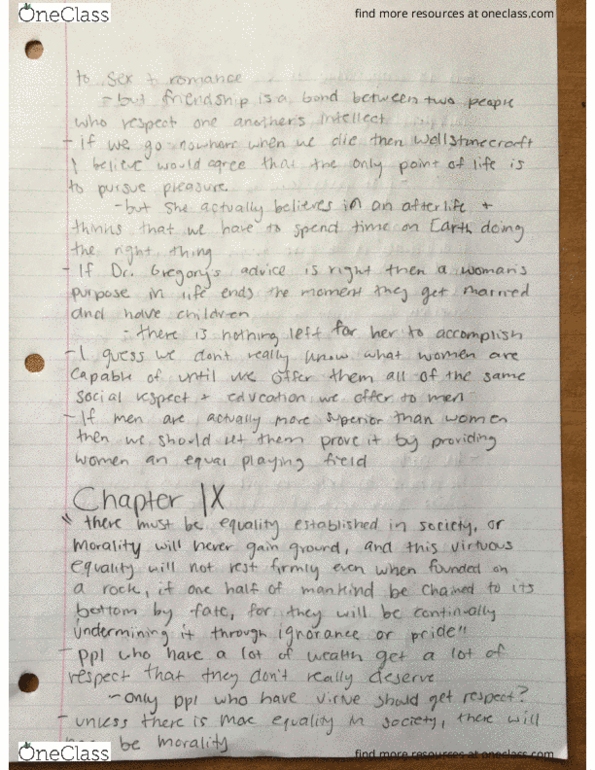 OneClass
find more resources at oneclass.com
to sex + romance
- but friendship is a bond between two people
who respect one another's intellect
- If we go nowhere when we die then Wollstonecraft
I believe would agree that the only point of life is
to pursue pleasure.
- but she actually believes in an afterlife +
thinks that we have to spend time on Earth doing
the right thing
- If Dr. Gregory's advice is right then a woman's
purpose in life ends the moment they get married
and have children
- there is nothing left for her to accomplish
- I guess we don't really know what women are
capable of until we offer them all of the same
social respect + education we offer to men
- If men are actually more superior than women
then we should let them prove it by providing
women an equal playing field
Chapter IX
"there must be equality established in society, or
morality will never gain ground, and this virtuous
equality will not rest firmly even when founded on
a rock, if one half of mankind be chained to its
bottom by fate, for they will be continually
undermining it through ignorance or pride"
- ppl who have a lot of wealth get a lot of
respect that they don't really deserve
- only ppl who have virtue should get respect?
- unless there is more equality in society, there will
be morality
OneClass
find more resources at oneclass.com